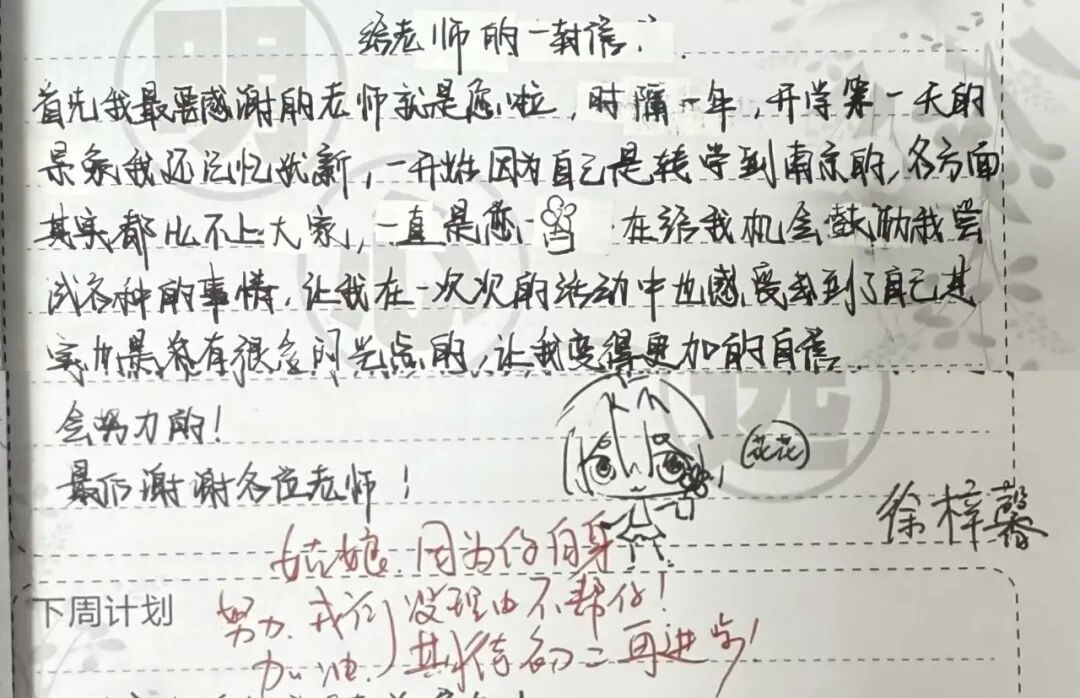 给老师的一封信:
首先我最要感谢的老师就是您啦,时隔一年,开学第一天的
景象我还记忆犹新,一开始因为自己是转学到南京的,各方面
其实都比不上大家,一直是您 在给我机会鼓励我尝
试各种的事情,让我在一次次的活动中也感受到了自己其
实如果是有很多闪光点的,让我变得更加的自信
会努力的!
最后谢谢各位老师!
花花
徐梓馨
姑娘,因为你自身
努力,我们没理由不帮你!
加油,期待初二再进步!
下周计划
明
心
选